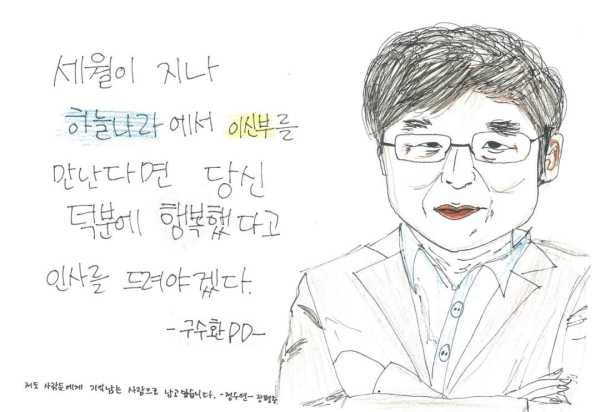 세월이 지나
하늘나라에서 이신부를
만난다면 당신
덕분에 행복했다고
인사를 드려야겠다.
-구수환PD-
저도 사람들에게 기억남는 사람으로 남고싶습니다. -정수연-